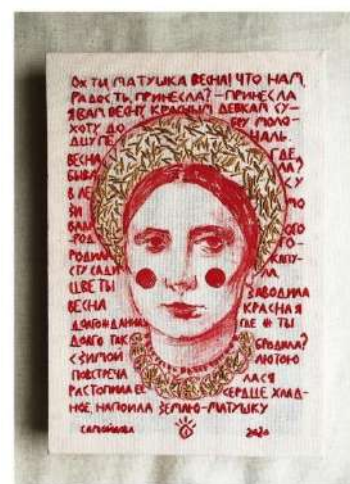 ОХ ТИ МАТУШКА ВЕСНА! ЧТО НАМ,
РАДОСТЬ, ПРИНЕСЛА? – ПРИНЕСЛА
Я ВАМ ВЕСНУ, КРАСНЫМ ДЕВКАМ СУ-
ХОТУ ДО БРУ МОЛО-
ДЦУ ПЕ НАЛЬ.
ВЕСНА ГДЕ
БЫВА ЛА?
В ЛЕ СУ
ЗИ МО
ВАЛ ОГО
-РОД ГО-
РОДИЛ КАПУ-
СТУ САДИ ЛА
ЦВЕТЫ ЗАВОДИЛА
ВЕСНА КРАСНАЯ
ДОЛГОЖДАННАЯ ГДЕ Ж ТЫ
ДОЛГО ТАК БРОДИЛА?
С ЗИМОЙ ЛЮТОЮ
ПОВСТРЕЧА ЛАСЯ
РАСТОПИЛА ЕЕ СЕРДЦЕ ХЛАД-
НОЕ, НАПОИЛА ЗЕМЛЮ-МАТУШКУ
САМОЙЛОВА 2020